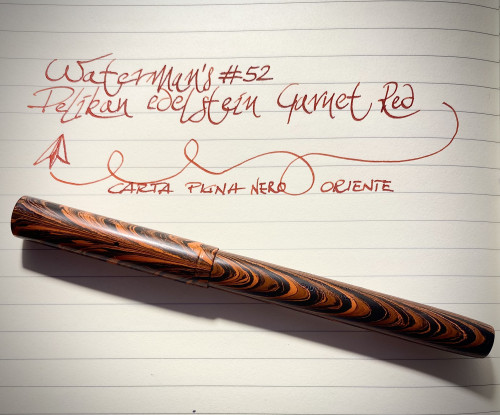 Waterman's #52
Pelikan edelstein Garnet Red
CARTA PIGNA NERO ORIENTE